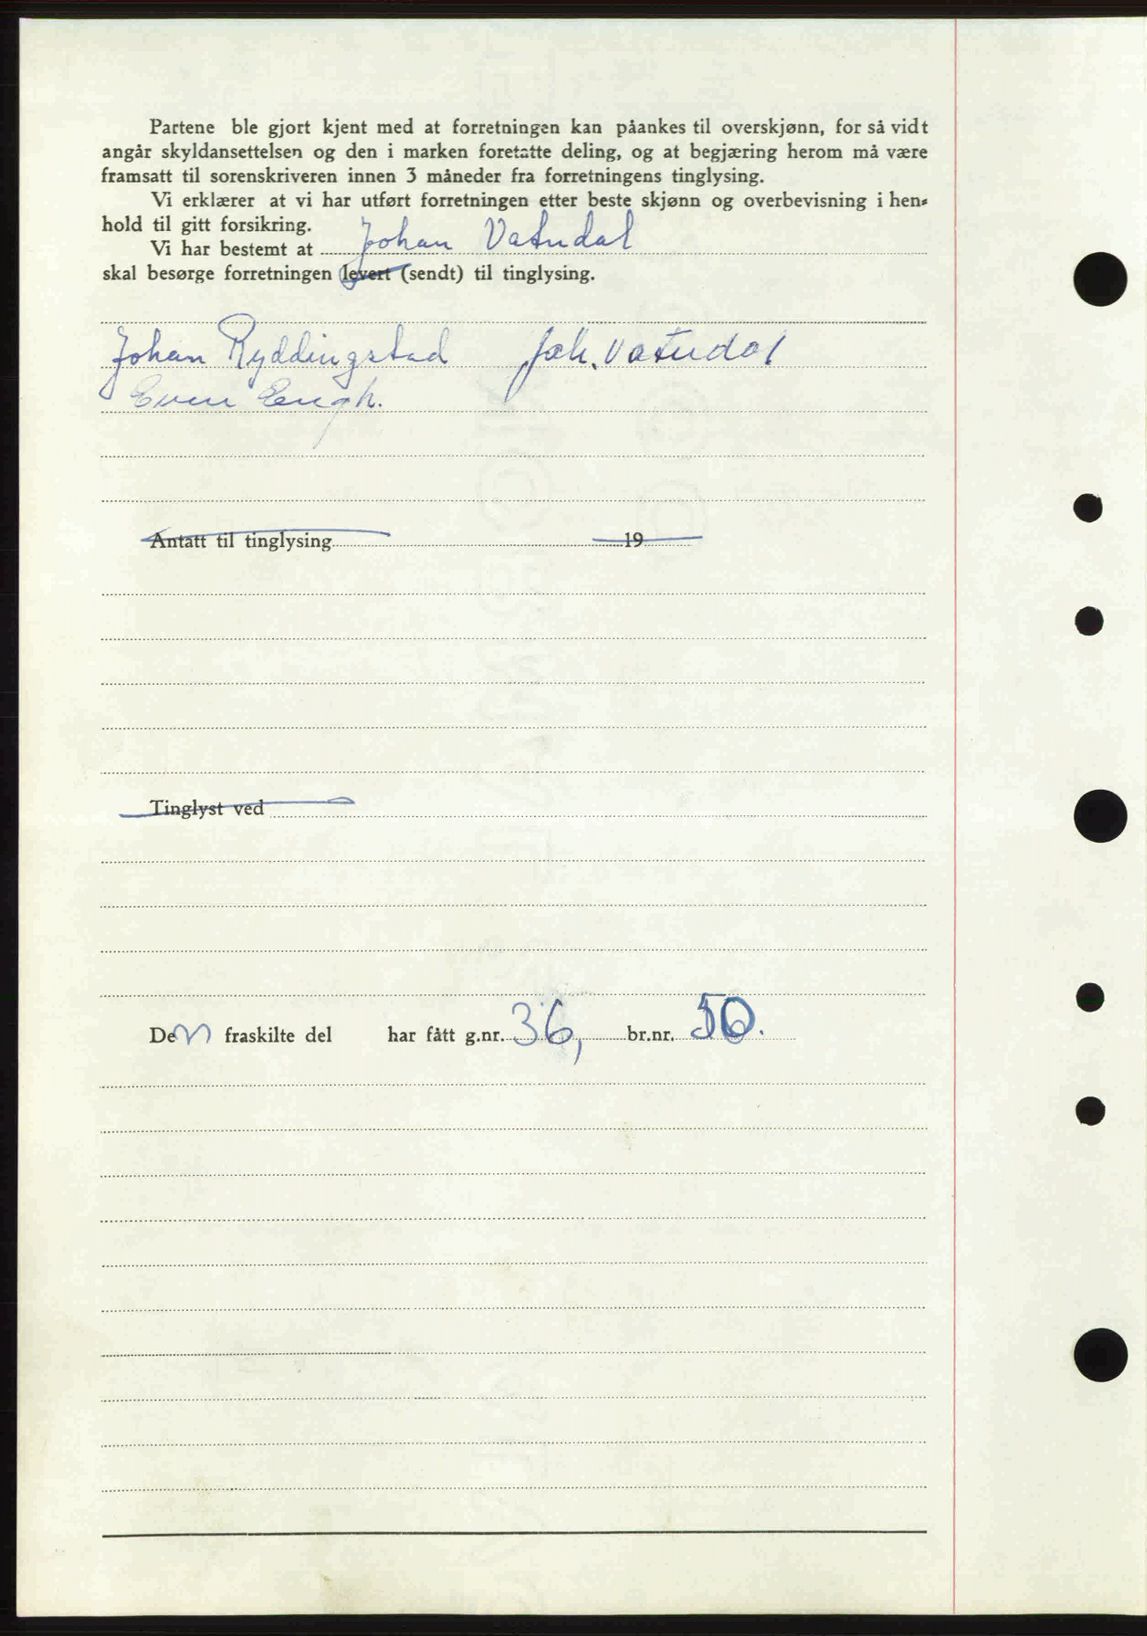 Partene ble gjort kjent med at forretningen kan påankes til overskjønn, for så vidt
angår skyldansettelsen og den i marken foretatte deling, og at begjæring herom må være
framsatt til sorenskriveren innen 3 måneder fra forretningens tinglysing.
Vi erklærer at vi har utført forretningen etter beste skjønn og overbevisning i hen-
hold til gitt forsikring.
Vi har bestemt at Johan Vatndal
skal besørge forretningen (levert (sendt) til tinglysing.
Johan Ryddingstad Joh. Vatndal
Even Eengh.
Antatt til tinglysing 19
Tinglyst ved
Den fraskilte del har fått g.nr. 36, br.nr. 50.